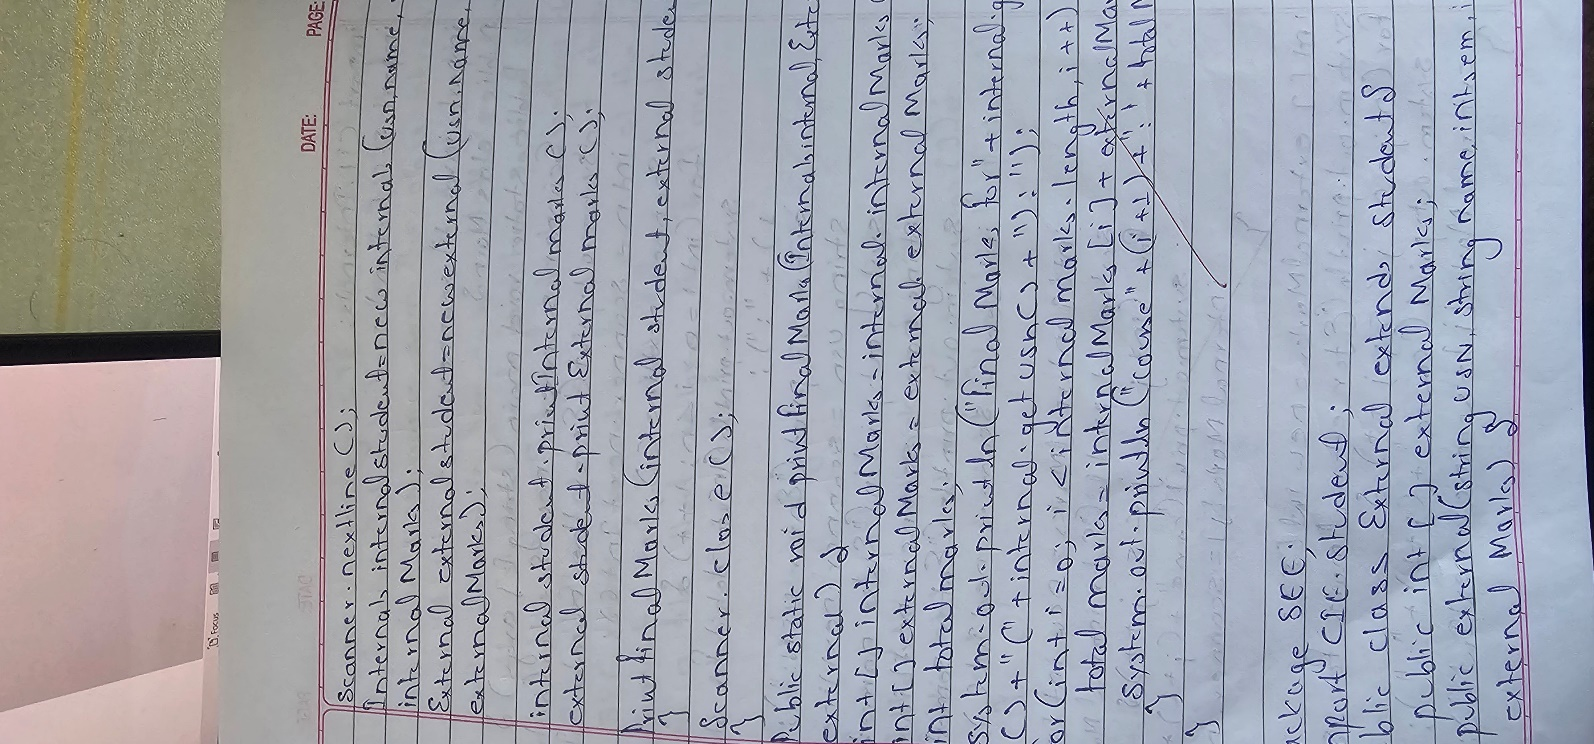 DATE: PAGE:
Scanner.nextline();
Internals internalstudent=new internals (usn,name,
internal Marks);
External externalstudent=newexternal (usn,name,
externalMarks);
internal student.printInternal marks ();
external student.print External marks ();
Print final Marks (internal student, external studen
}
Scanner.close();
}
Public static void print final Marks (Internals internal, Exte
external) {
int[] internal Marks = internal.internal Marks
int[] external Marks = external.external Marks;
int total marks;
System.out.println ("final Marks for" + internal.g
() + "(" + internal.get usn() + "):");
for(int i=0; i < internal marks.length, i++)
total marks = internal Marks [i] + external Mar
System.out.println ("course" + (i+1) + ":" + total M
}
}
ackage SEE;
mport CIE.Student;
blic class External extends Student {
public int [] external Marks;
public external (string usn, string name, int sem, i
external Marks) {
Focus